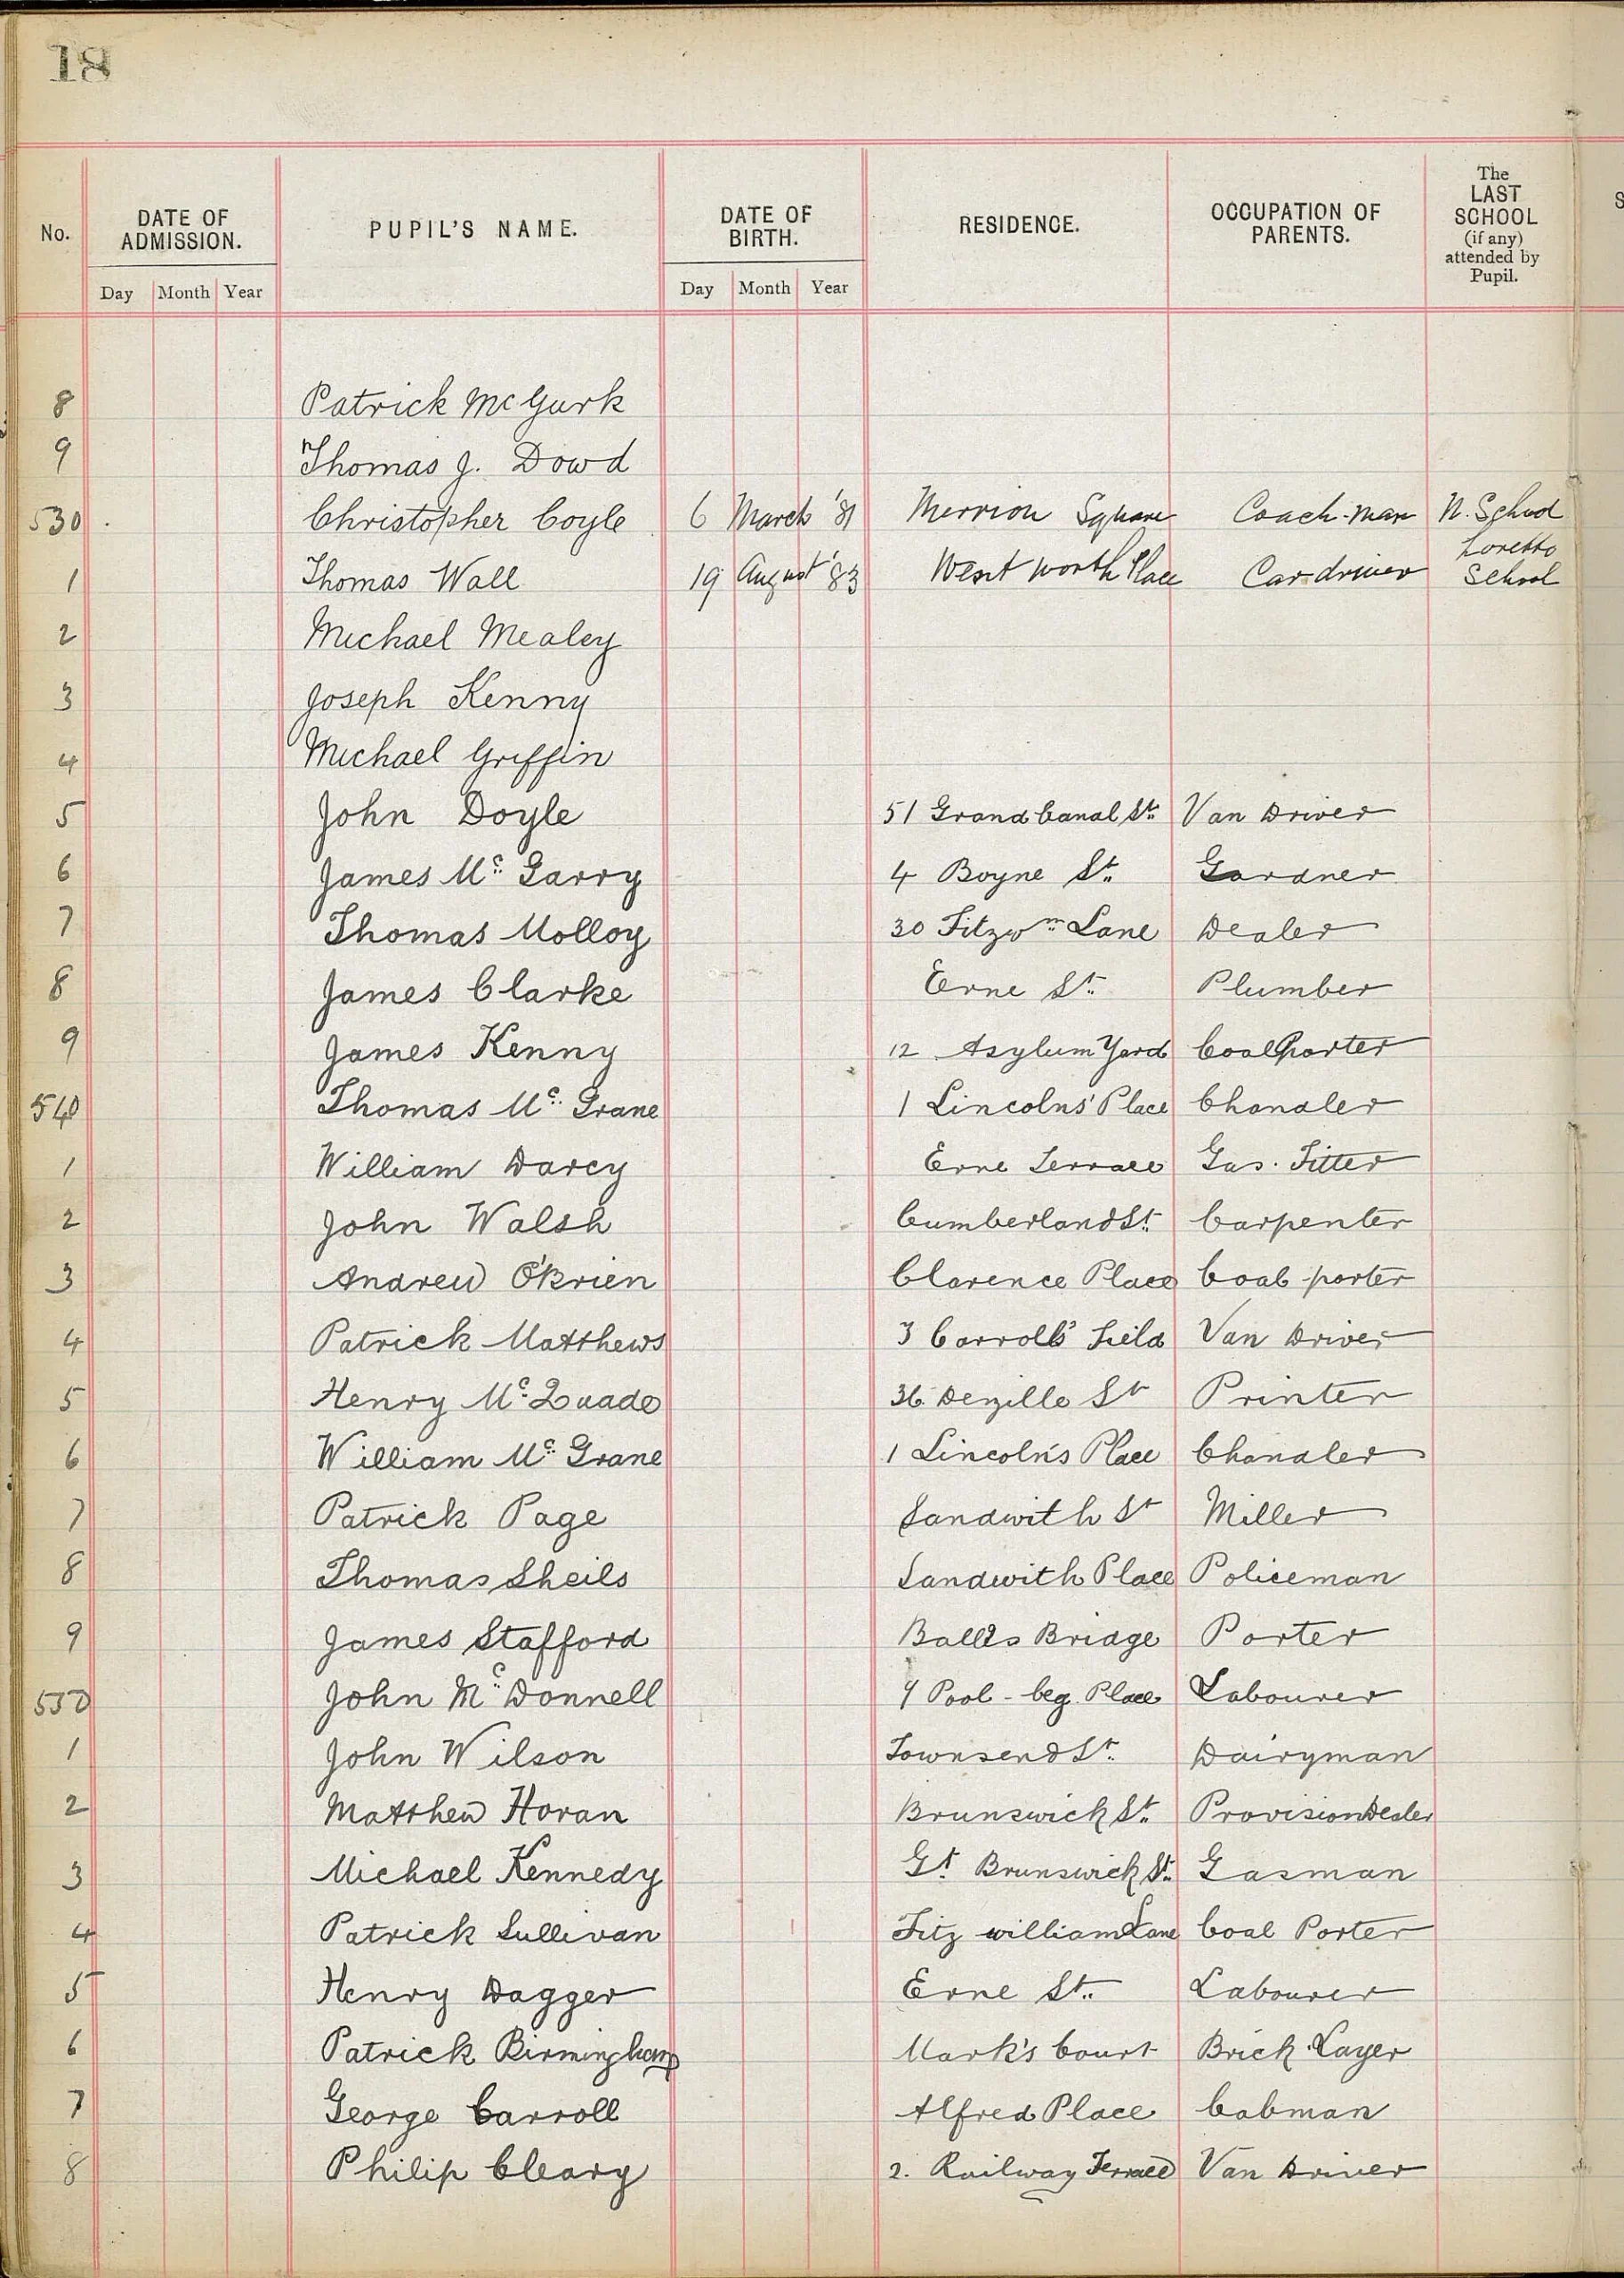 18
No. DATE OF ADMISSION. PUPIL'S NAME. DATE OF BIRTH. RESIDENCE. OCCUPATION OF PARENTS. The LAST SCHOOL (if any) attended by Pupil.
Day Month Year Day Month Year
8 Patrick McGurk
9 Thomas J. Dowd
530 Christopher Coyle 6 March '81 Merrion Square Coach-man N. School
1 Thomas Wall 19 August '83 Wentworth Place Car driver Loretto School
2 Michael Mealey
3 Joseph Kenny
4 Michael Griffin
5 John Doyle 51 Grand Canal St. Van Driver
6 James Mc Garry 4 Boyne St. Gardner
7 Thomas Molloy 30 Fitzwm Lane Dealer
8 James Clarke Erne St. Plumber
9 James Kenny 12 Asylum Yard Coal Porter
540 Thomas Mc Grane 1 Lincolns' Place Chandler
1 William Darcy Erne Terrace Gas. Fitter
2 John Walsh Cumberland St. Carpenter
3 Andrew O'Brien Clarence Place Coal porter
4 Patrick Matthews 3 Carrolls' Field Van Driver
5 Henry Mc Quade 36 Denzille St Printer
6 William Mc Grane 1 Lincoln's Place Chandler
7 Patrick Page Sandwith St Miller
8 Thomas Sheils Sandwith Place Policeman
9 James Stafford Balls Bridge Porter
550 John Mc Donnell Pool-beg Place Labourer
1 John Wilson Townsend St. Dairyman
2 Matthew Horan Brunswick St. Provision Dealer
3 Michael Kennedy Gt. Brunswick St. Gasman
4 Patrick Sullivan Fitz william Lane Coal Porter
5 Henry Dagger Erne St. Labourer
6 Patrick Birmingham Mark's Court Brick Layer
7 George Carroll Alfred Place Cabman
8 Philip Cleary 2. Railway Terrace Van Driver